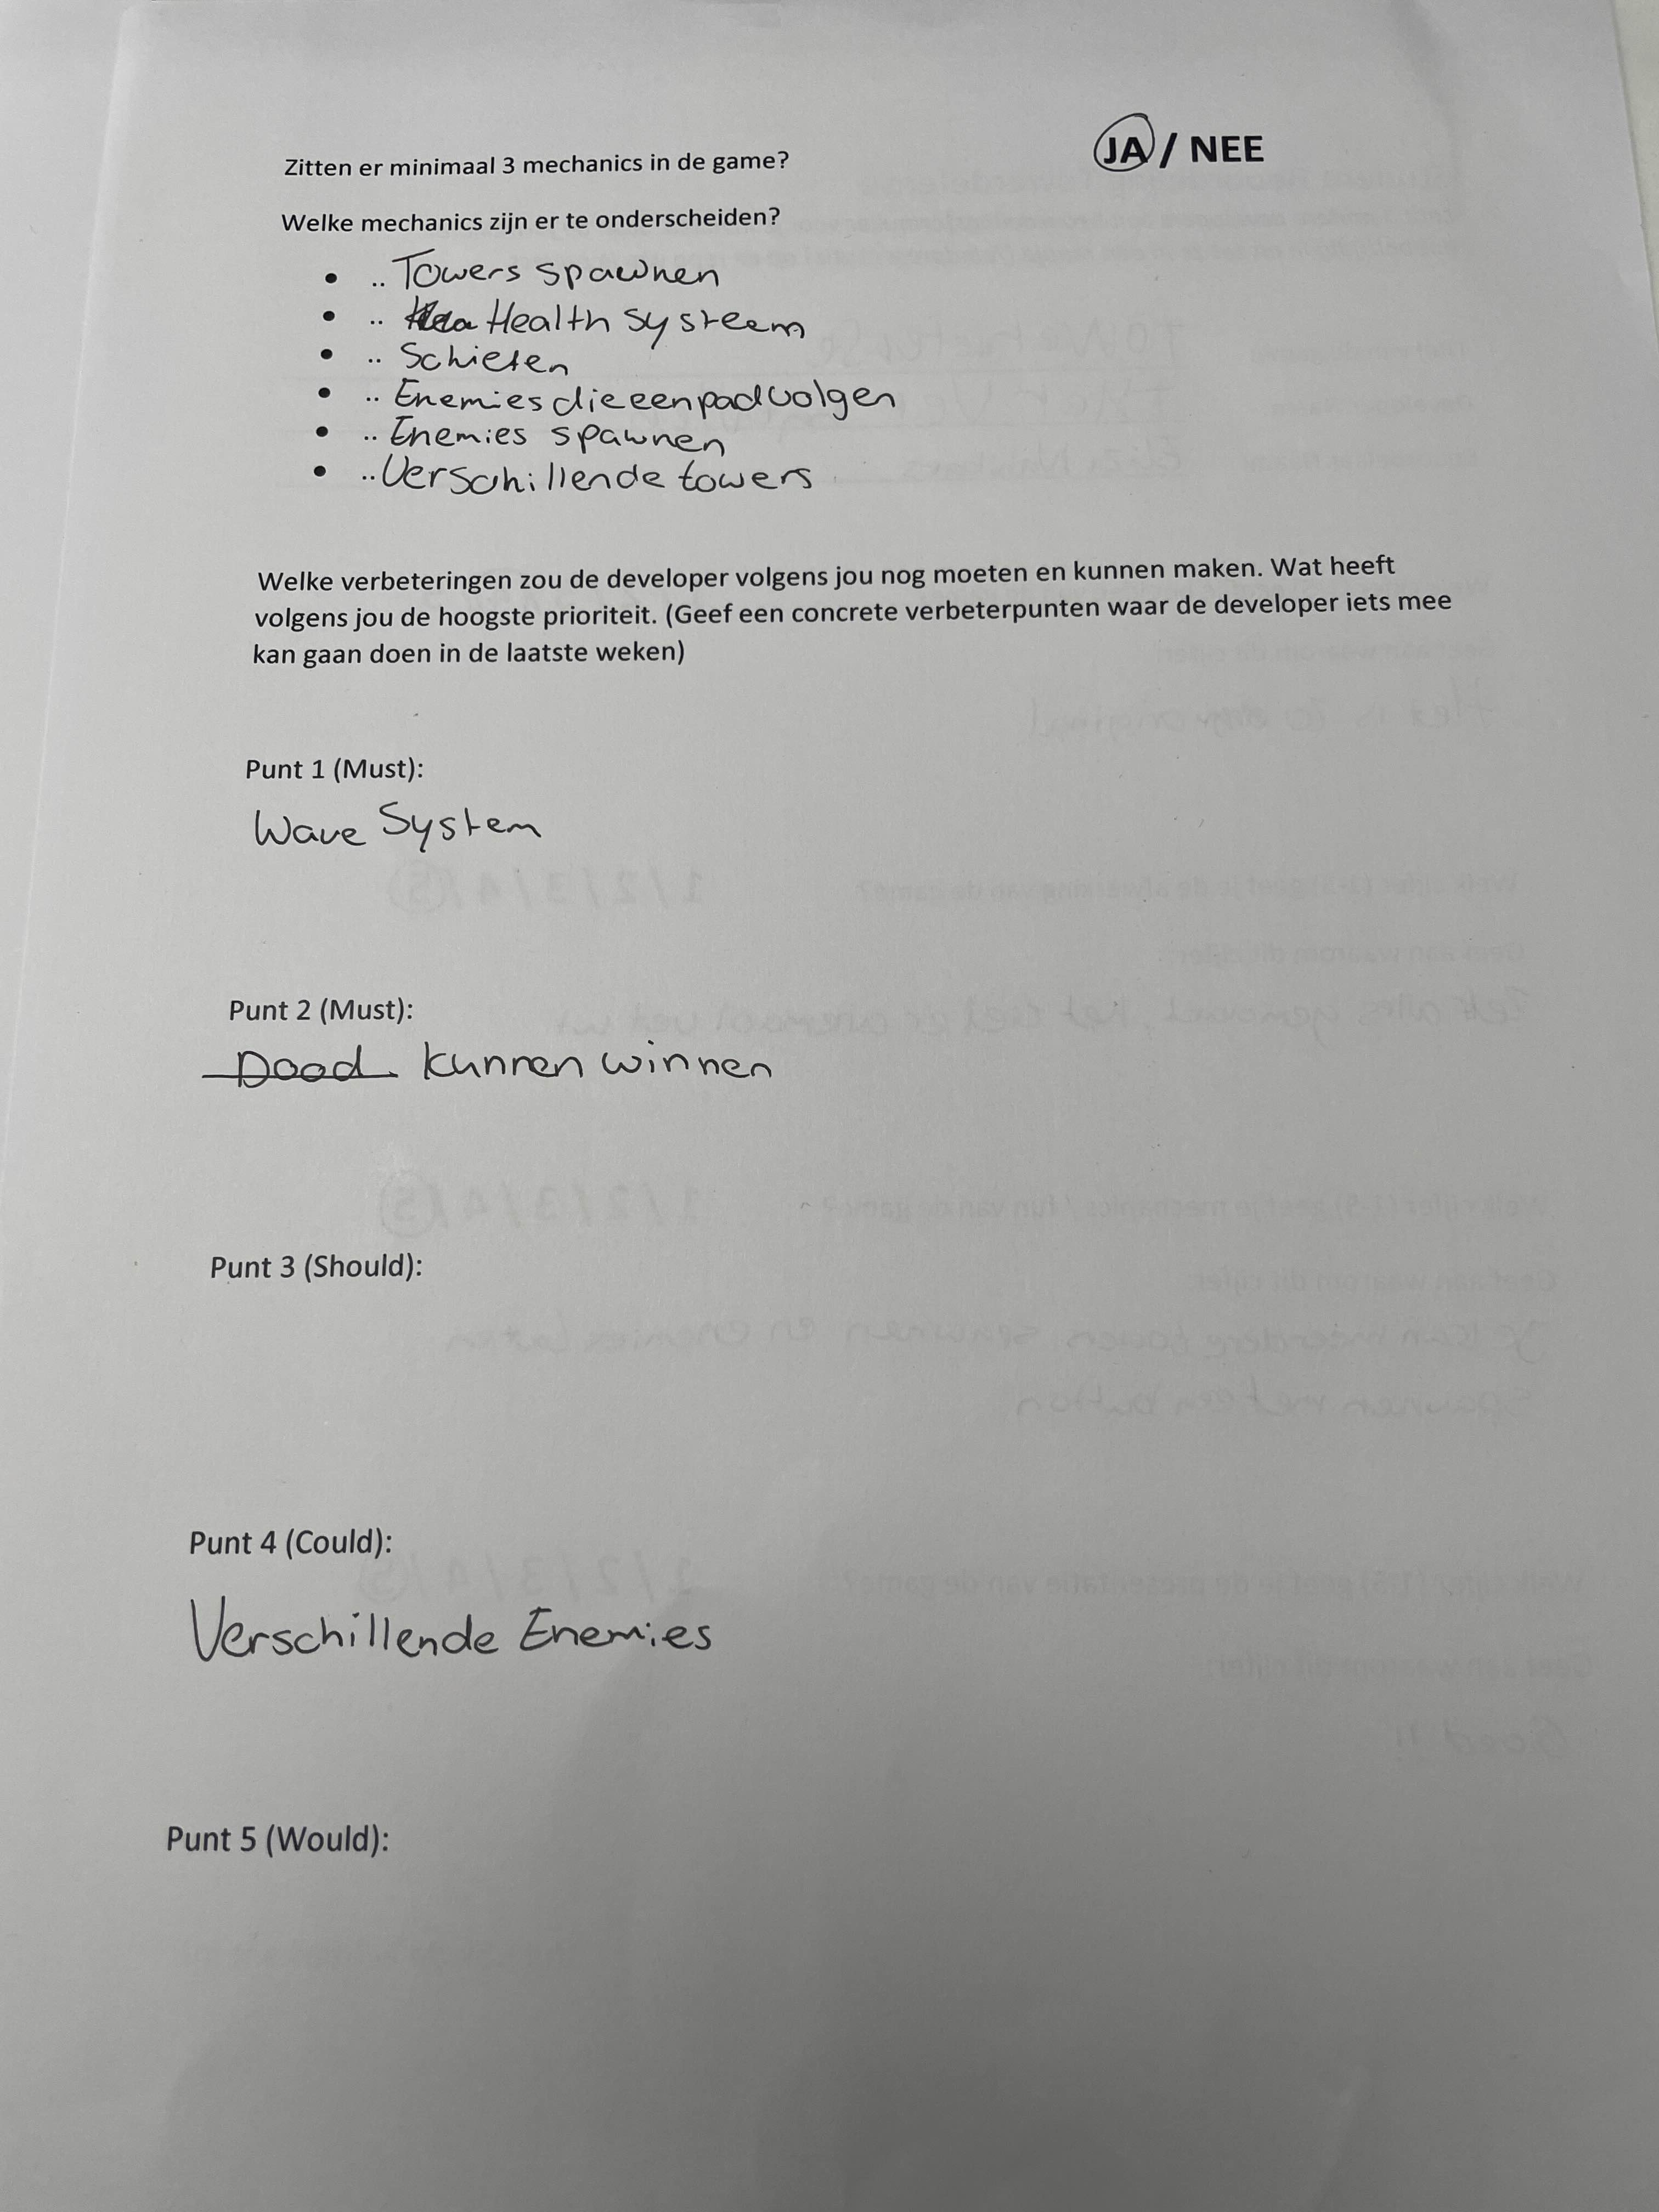 Zitten er minimaal 3 mechanics in de game? JA / NEE
Welke mechanics zijn er te onderscheiden?
• .. Towers spawnen
• .. Health systeem
• .. Schieten
• .. Enemies die een pad volgen
• .. Enemies spawnen
• .. Verschillende towers
Welke verbeteringen zou de developer volgens jou nog moeten en kunnen maken. Wat heeft
volgens jou de hoogste prioriteit. (Geef een concrete verbeterpunten waar de developer iets mee
kan gaan doen in de laatste weken)
Punt 1 (Must):
Wave System
Punt 2 (Must):
Dood kunnen winnen
Punt 3 (Should):
Punt 4 (Could):
Verschillende Enemies
Punt 5 (Would):